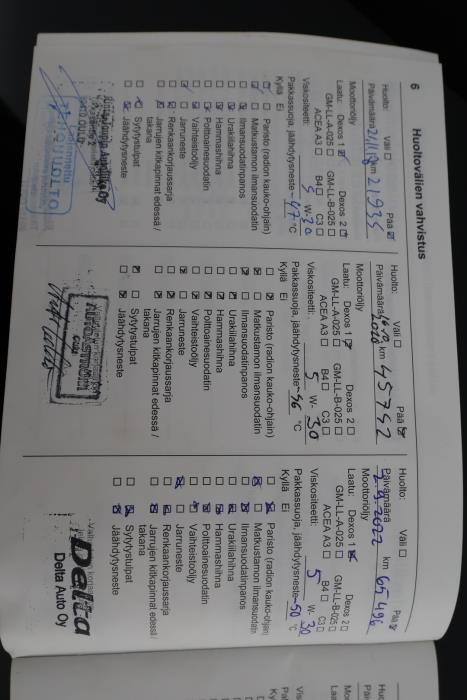 6
Huoltovälien vahvistus
Huolto: Väli Pää
Päivämäärä km 21935
Moottoriöljy
Laatu: Dexos 1 Dexos 2
GM-LL-A-025 GM-LL-B-025
ACEA A3 B4 C3
Viskositeetti: 5 W- 30
Pakkassuoja, jäähdytysneste -47 °C
Kyllä Ei
Paristo (radion kauko-ohjain)
Matkustamon ilmansuodatin
Ilmansuodatinpanos
Urakiilahihna
Hammashihna
Polttoainesuodatin
Vaihteistoöljy
Jarruneste
Renkaankorjaussarja
Jarrujen kitkapinnat edessä /
takana
Sytytystulpat
Jäähdytysneste
Huolto: Väli Pää
Päivämäärä 2020 km 45752
Moottoriöljy
Laatu: Dexos 1 Dexos 2
GM-LL-A-025 GM-LL-B-025
ACEA A3 B4 C3
Viskositeetti: 5 W- 30
Pakkassuoja, jäähdytysneste -46 °C
Kyllä Ei
Paristo (radion kauko-ohjain)
Matkustamon ilmansuodatin
Ilmansuodatinpanos
Urakiilahihna
Hammashihna
Polttoainesuodatin
Vaihteistoöljy
Jarruneste
Renkaankorjaussarja
Jarrujen kitkapinnat edessä /
takana
Sytytystulpat
Jäähdytysneste
Huolto: Väli Pää
Päivämäärä 2.9.2022 km 65496
Moottoriöljy
Laatu: Dexos 1 Dexos 2
GM-LL-A-025 GM-LL-B-025
ACEA A3 B4 C3
Viskositeetti: 5 W- 30
Pakkassuoja, jäähdytysneste -50 °C
Kyllä Ei
Paristo (radion kauko-ohjain)
Matkustamon ilmansuodatin
Ilmansuodatinpanos
Urakiilahihna
Hammashihna
Polttoainesuodatin
Vaihteistoöljy
Jarruneste
Renkaankorjaussarja
Jarrujen kitkapinnat edessä /
takana
Sytytystulpat
Jäähdytysneste
Delta
Delta Auto Oy